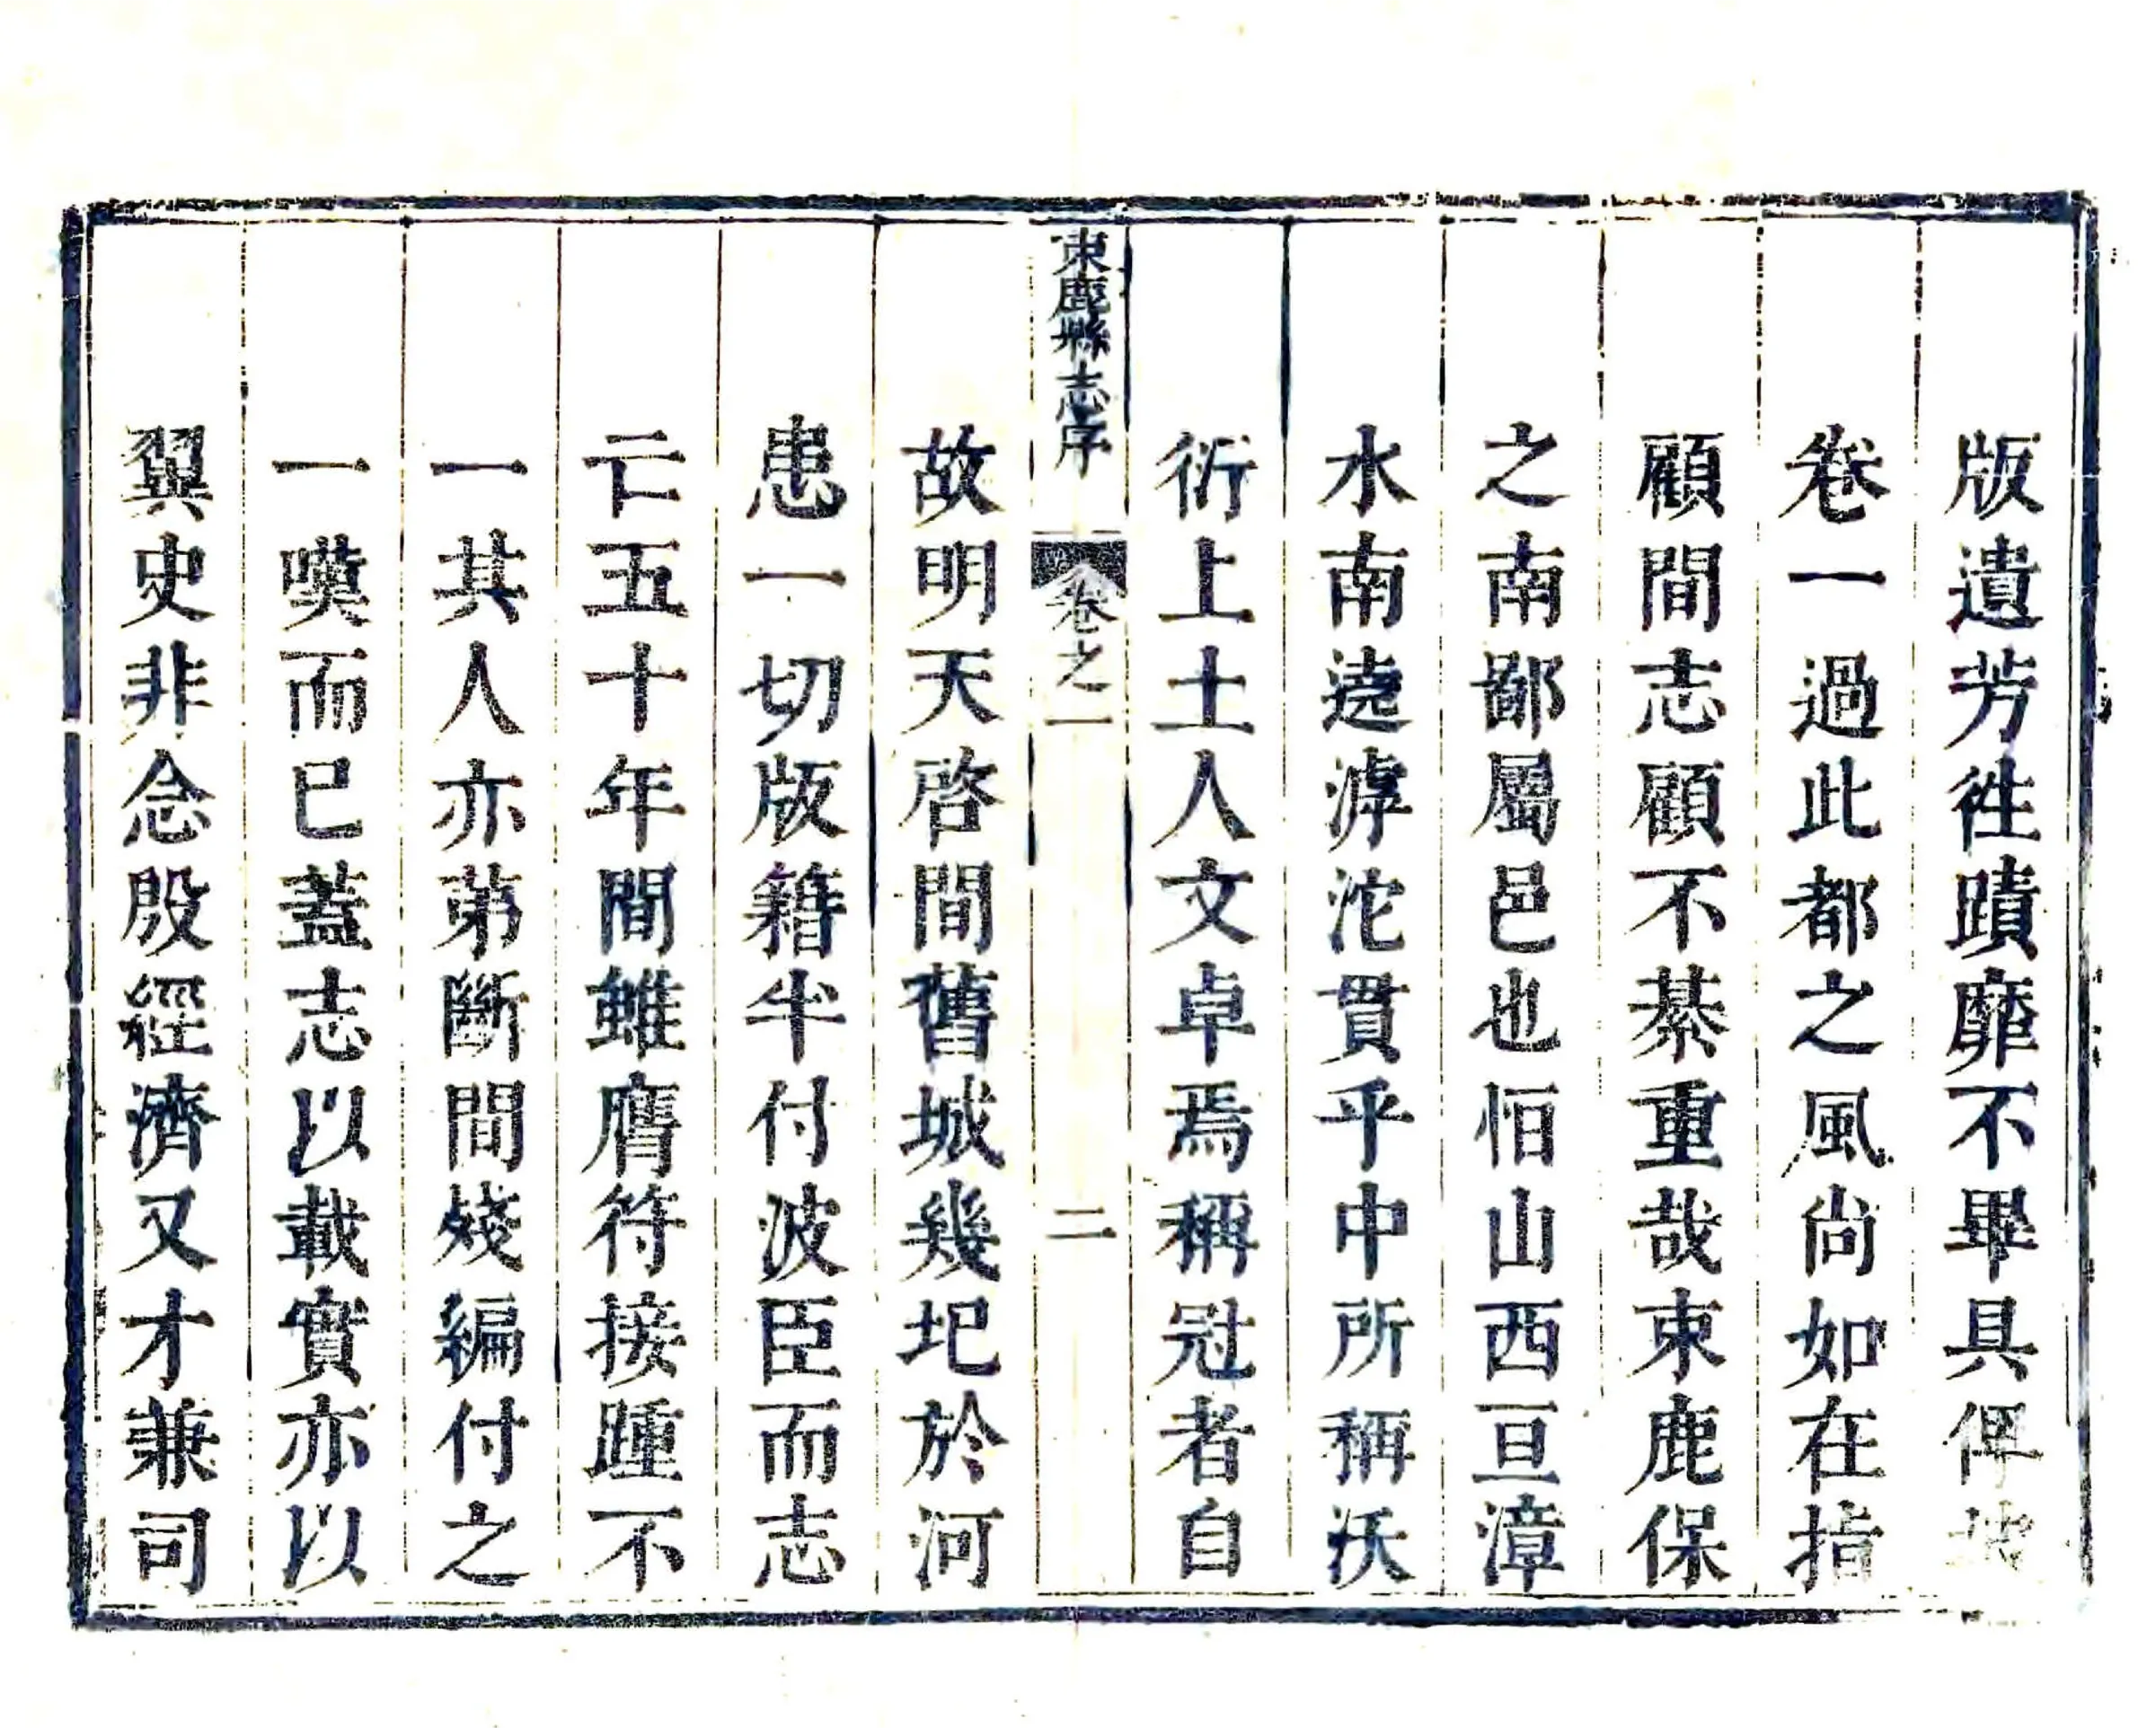 版遺芳徃蹟靡不畢具俾
卷一過此都之風尚如在指
顧間志顧不綦重哉束鹿保
之南鄙屬邑也恒山西亘漳
水南遶滹沱貫乎中所稱沃
衍上土人文卓焉稱冠者自
束鹿縣志序 卷之一 二
故明天啓間舊城幾圮於河
患一切版籍半付波臣而志
亡五十年間雖膺符接踵不
一其人亦苐斷間殘編付之
一嘆而已蓋志以載實亦以
翼史非念殷經濟又才兼司